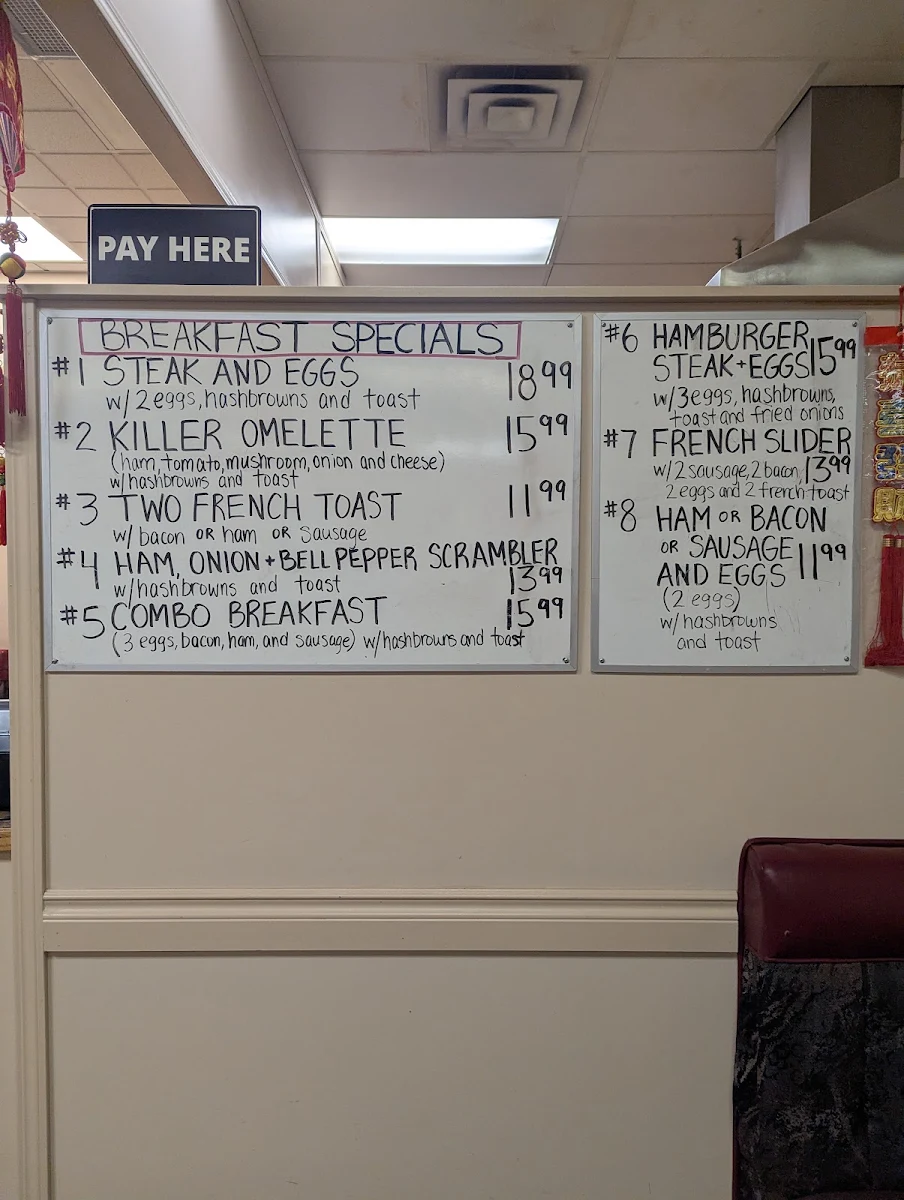 PAY HERE
BREAKFAST SPECIALS
#1 STEAK AND EGGS 18 99
w/2eggs, hashbrowns and toast
#2 KILLER OMELETTE 15 99
(ham, tomato, mushroom, onion and cheese)
w/hashbrowns and toast
#3 TWO FRENCH TOAST 11 99
w/ bacon OR ham OR sausage
#4 HAM, ONION + BELL PEPPER SCRAMBLER
w/hashbrowns and toast 13 99
#5 COMBO BREAKFAST 15 99
(3 eggs, bacon, ham, and sausage) w/hashbrowns and toast
#6 HAMBURGER
STEAK + EGGS 15 99
w/3eggs, hashbrowns,
toast and fried onions
#7 FRENCH SLIDER
w/2 sausage, 2 bacon, 13 99
2 eggs and 2 french toast
#8 HAM OR BACON
OR SAUSAGE 11 99
AND EGGS
(2 eggs)
w/hashbrowns
and toast